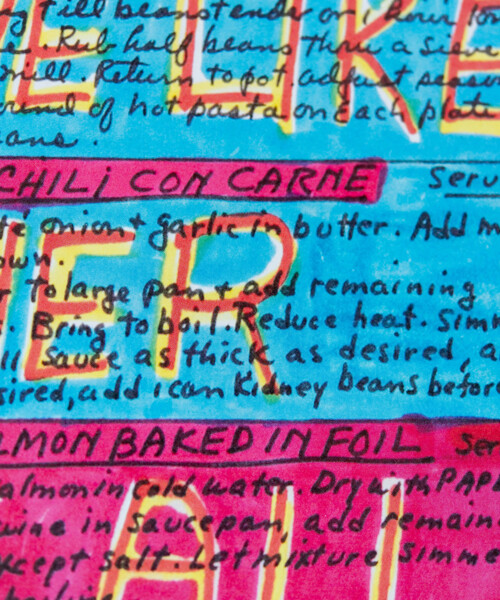 till beans tender or 1 hour
. Rub half beans thru a sieve
mill. Return to pot adjust seaso
ound of hot pasta on each plate
eans.
E LIKE
CHILI CON CARNE Serv
té onion + garlic in butter. Add m
own.
r to large pan + add remaining
. Bring to boil. Reduce heat. Simm
ll sauce as thick as desired, a
sired, add 1 can Kidney beans befor
ER
LMON BAKED IN FOIL Ser
almon in cold water. Dry with PAP
wine in saucepan, add remain
xcept salt. Let mixture simme
ALL